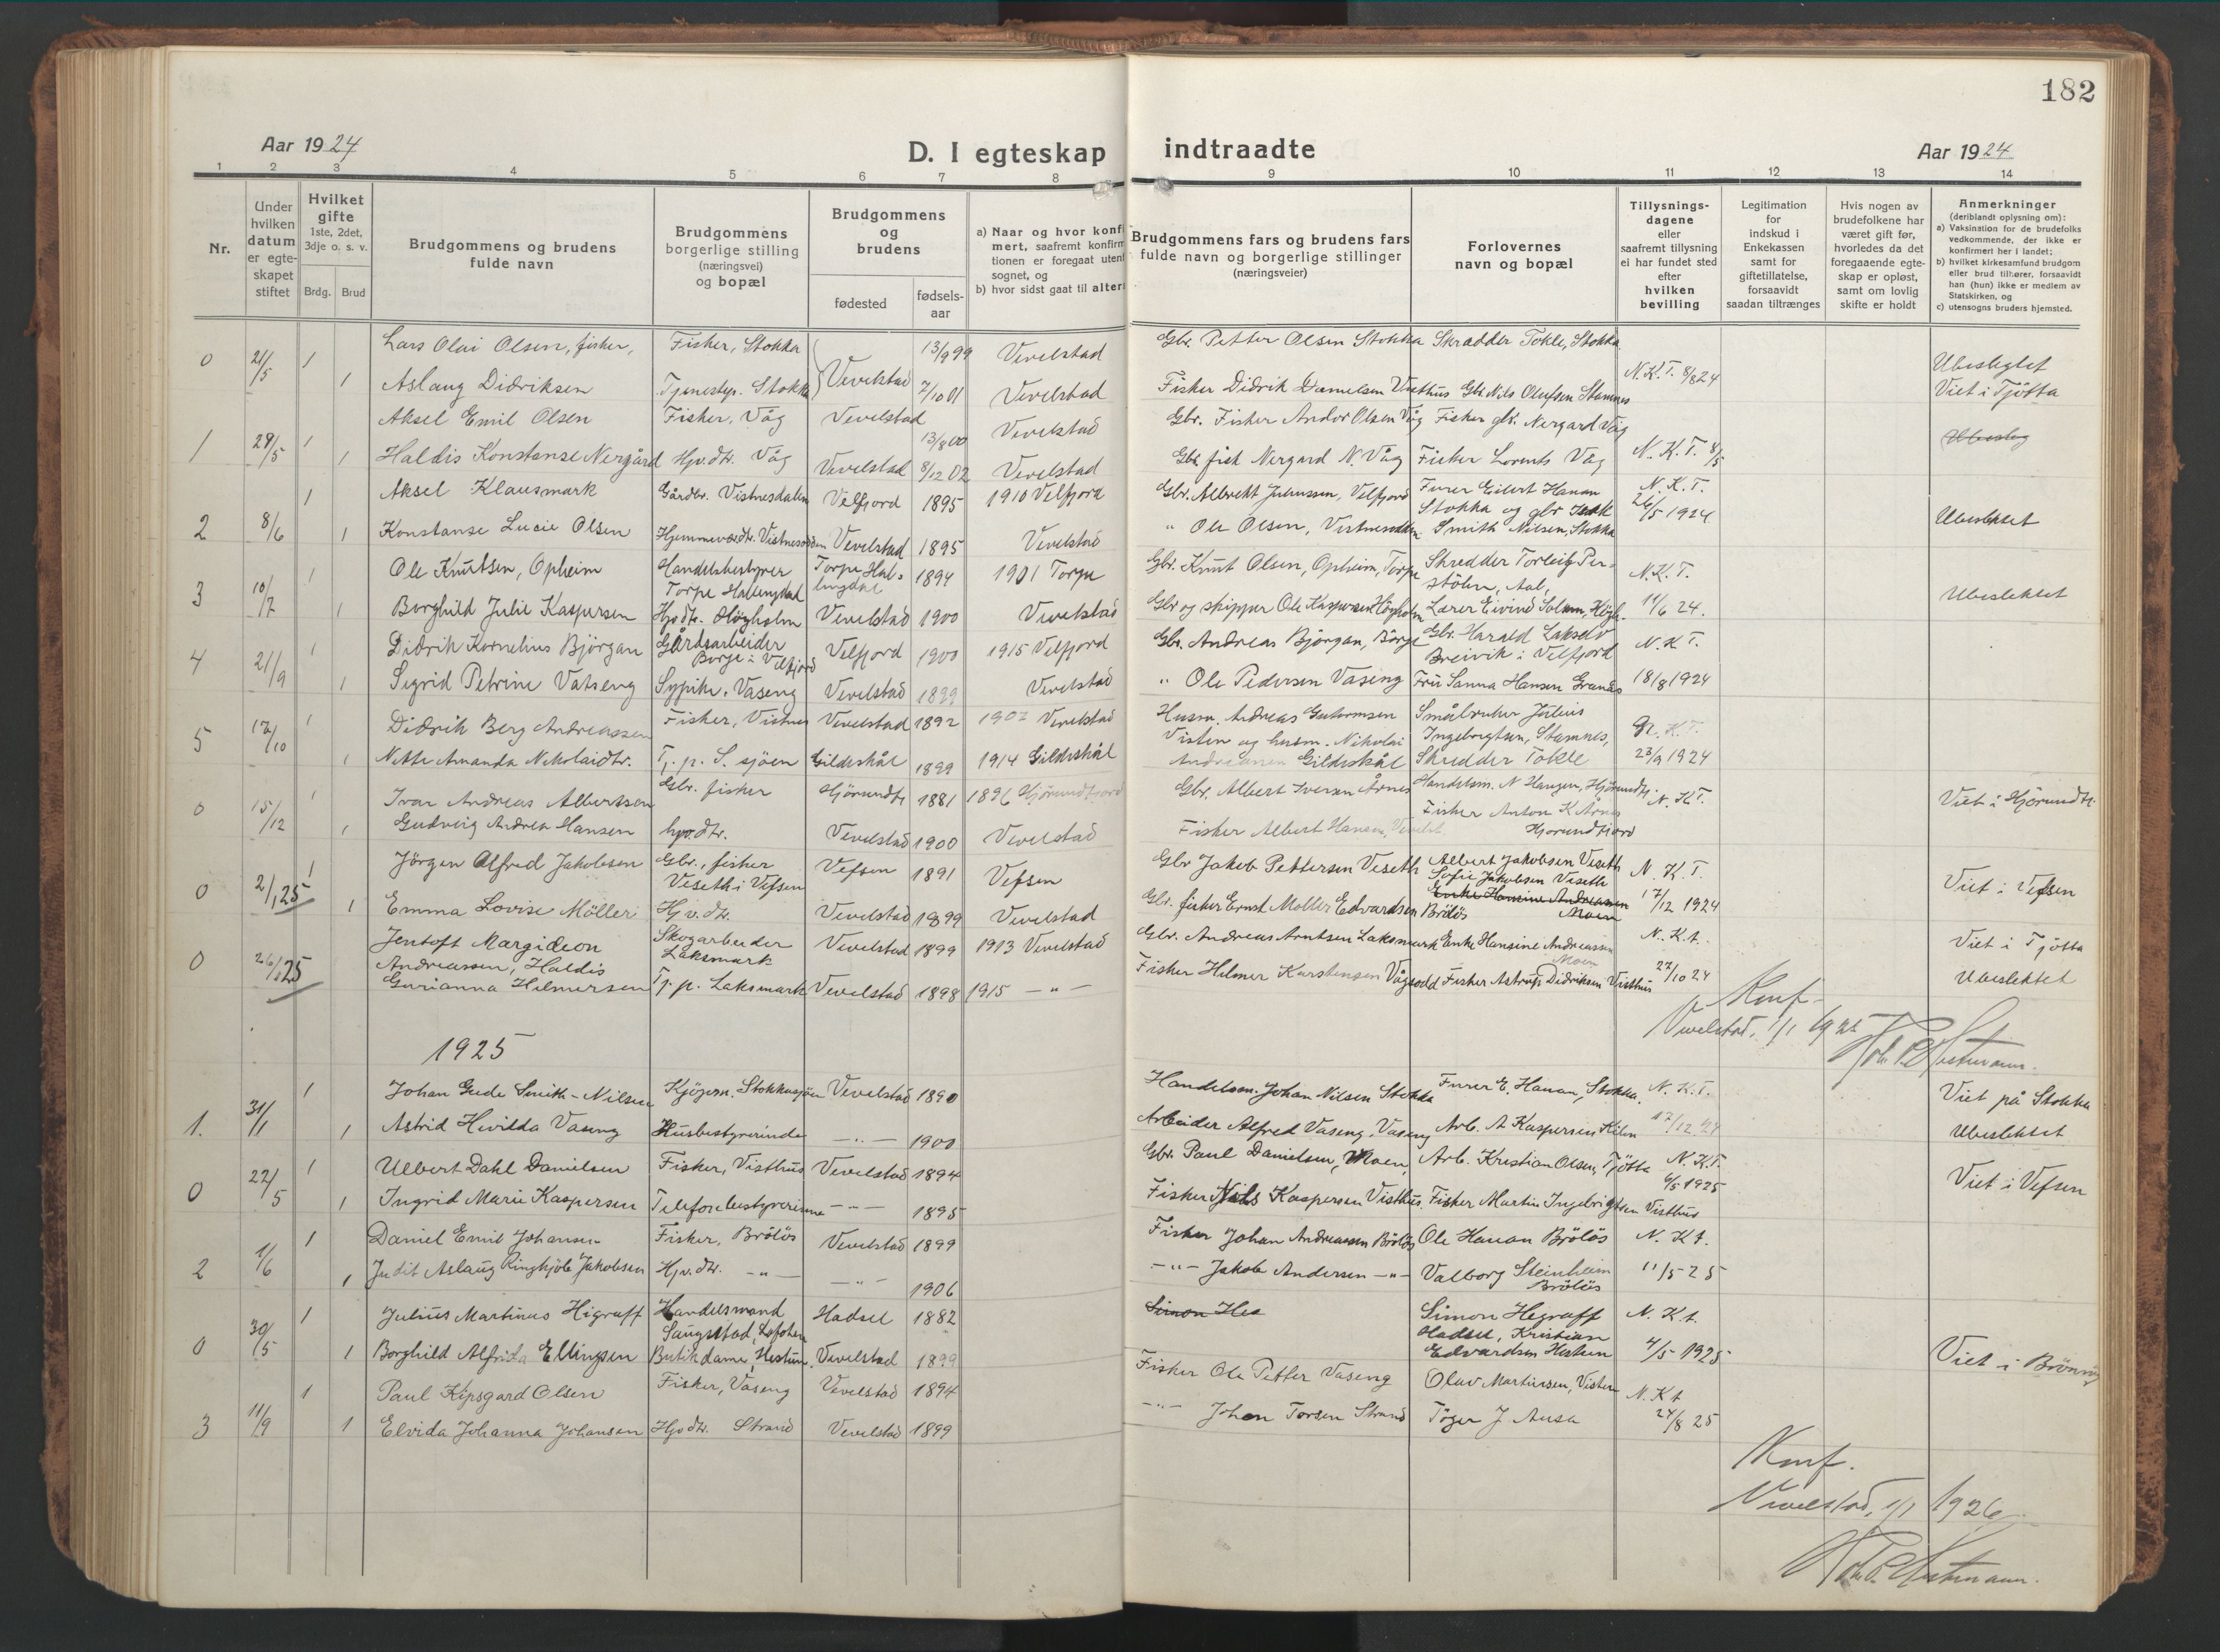 182
Aar 1924
D. I egteskap indtraadte
Aar 1924
1 2 3 4 5 6 7 8 9 10 11 12 13 14
Nr.
Under hvilken datum er egteskapet stiftet
Hvilket gifte 1ste, 2det, 3dje o. s. v.
Brdg. Brud
Brudgommens og brudens fulde navn
Brudgommens borgerlige stilling (næringsvei) og bopæl
Brudgommens og brudens
fødested
fødselsaar
a) Naar og hvor konfi
mert, saafremt konfirm
tionen er foregaat uten
sognet, og
b) hvor sidst gaat til alter
Brudgommens fars og brudens fars fulde navn og borgerlige stillinger (næringsveier)
Forlovernes navn og bopæl
Tillysningsdagene eller saafremt tillysning ei har fundet sted efter hvilken bevilling
Legitimation for indskud i Enkekassen samt for giftetillatelse, forsaavidt saadan tiltrænges
Hvis nogen av brudefolkene har været gift før, hvorledes da det foregaaende egteskap er opløst, samt om lovlig skifte er holdt
Anmerkninger
(deriblandt oplysning om):
a) Vaksination for de brudefolks vedkommende, der ikke er konfirmert her i landet;
b) hvilket kirkesamfund brudgom eller brud tilhører, forsaavidt han (hun) ikke er medlem av Statskirken, og
c) utensogns bruders hjemsted.
0 21/5 1 Lars Olai Olsen, fisker, Fisker, Stokka Vevelstad 13/9 99 Vevelstad Gbr. Petter Olsen Stokka Skrædder Tokle, Stokka N.K.T. 8/8 24 Ubeslegtet
1 Aslaug Didriksen Tjenestep. Stokka 7/10 01 Vevelstad Fisker Didrik Danielsen Visthus Gbr. Nils Olufsen Stamnes Viet i Tjötta
1 29/5 1 Aksel Emil Olsen Fisker, Våg Vevelstad 13/8 00 Vevelstad Gbr. Fisker Andor Olsen Våg Fisker gbr. Nergard Våg Ubesleg
1 Haldis Konstanse Nergård Hjv.dtr. Våg Vevelstad 8/12 02 Vevelstad Gbr. fisk Nergard N. Våg Fisker Lorents Våg N.K.T. 8/5
2 8/6 1 Aksel Klausmark Gårdbr. Vistnesdalen Velfjord 1895 1910 Velfjord Gbr. Albrekt Julnussen, Velfjord Furer Eilert Hanan Stokka og gbr N.K.T. 26/5 1924 Ubeslektet
1 Konstanse Lucie Olsen Hjemmevær. dtr. Vistnesodden Vevelstad 1895 Vevelstad " Ole Olsen, Vistnesodden Smith Nilsen, Stokka
3 10/7 1 Ole Knutsen, Opheim Handelsbestyrer Torpe Hallingdal Torpe Hallingdal 1894 1901 Torpe Gbr. Knut Olsen, Opheim, Torpe Skredder Torleif Perstölen, Aal, N.K.T. 11/6 24. Ubeslektet
1 Borghild Julie Kaspersen Hjv.dtr. Högholm Vevelstad 1900 Vevelstad Gbr og skipper Ole Kaspersen Högholm Lærer Eivind Solem, Högh.
4 21/9 1 Didrik Kornelius Björgan Gårdsarbeider Borge i Velfjord Velfjord 1900 1915 Velfjord Gbr. Andreas Björgan, Börge Gbr. Harald Lakselv Breivik i Velfjord N.K.T. 18/8 1924
1 Sigrid Petrine Vatseng Sypike. Vaseng Vevelstad 1899 Vevelstad " Ole Pedersen Vaseng Fru Sanna Hansen Granås
5 12/10 1 Didrik Berg Andreassen Fisker, Vistnes Vevelstad 1892 1907 Vevelstad Husm. Andreas Guttormsen Visten og husm. Nikolai Småbruker Julius Ingebrigtsen, Stamnes, N.K.T. 23/9 1924
1 Nette Amanda Nikolaidtr. Tj. p. S. sjöen Gildeskål 1899 1914 Gildeskål Andreassen Gildeskål Skredder Tokle
0 15/12 1 Ivar Andreas Albertsen Gbr. fisker Hjörundfj 1881 1896 Hjörundfjord Gbr. Albert Iversen Årnes Handelsm. N Hansen, Hjörundfj. N.K.T. Viet i Hjörundfj.
1 Gudveig Andrea Hansen hjv.dtr. Vevelstad 1900 Vevelstad Fisker Albert Hansen, Vevelst. Fisker Anton K Årnes Hjorundfjord
0 2/1 25 1 Jörgen Alfred Jakobsen Gbr., fisker Veseth i Vefsen Vefsen 1891 Vefsen Gbr Jakob Pettersen Veseth Albert Jakobsen Veseth Sofie Jakobsen Veseth N.K.T. 17/12 1924 Viet i Vefsen
1 Emma Lovise Möller Hjv.dtr. Vevelstad 1899 Vevelstad Gbr. fisker Ernst Möller Edvardsen Brölös Enke Hansine Andreassen Moen
0 26/1 25 Jentoft Margideon Andreassen, Haldis Skogarbeider Laksmark Vevelstad 1899 1913 Vevelstad Gbr. Andreas Arntsen Laksmark Enke Hansine Andreassen Moen N.K.t. 27/10 24 Viet i Tjötta
Gurianna Hilmersen Tj. p. Laksmark Vevelstad 1898 1915 —"— Fisker Hilmer Karstensen Vågsodd Fisker Astrup Didriksen Visthus Ubeslektet
Konf
Vevelstad, 1/1 1925
1925
1. 31/1 1 Johan Gude Smith-Nilsen Kjöpm. Stokkasjöen Vevelstad 1890 Handelsm. Johan Nilsen Stokka Furer E. Hanan, Stokka, N.K.T. 17/12 24 Viet på Stokka
1 Astrid Hevilda Vaseng Husbestyrerinde —"— 1900 Arbeider Alfred Vaseng, Vaseng Arb. A Kaspersen Kilen Ubeslektet
0 22/5 1 Ulbert Dahl Danielsen Fisker, Visthus Vevelstad 1894 Gbr. Paul Danielsen, Moen, Arb. Kristian Olsen, Tjötta N.K.T. 6/5 1925 Viet i Vefsen
1 Ingrid Marie Kaspersen Telefonbestyrerinne —"— 1895 Fisker Nils Kaspersen Visthus. Fisker Martin Ingebrigtsen Visthus
2 1/6 1 Daniel Emil Johansen Fisker, Brölös Vevelstad 1899 Fisker Johan Andreassen Brölös Ole Hanan Brölös N.K.t. 11/5 25
1 Judit Aslaug Ringkjöb Jakobsen Hjv.dtr. —"— —"— 1906 —"— Jakob Andersen —"— Valborg Steinheim Brölös
0 30/5 1 Julius Martinus Higraff Handelsmand Saugstad, Lofoten Hadsel 1882 Simon Heg Simon Hegraff Hadsel, Kristian N.K.t. 4/5 1925
1 Borghild Alfrida Ellingsen Butikdame, Hestun. Vevelstad 1899 Edvardsen Hestun Viet i Brönnöy
3 11/9 1 Paul Kipsgard Olsen Fisker, Vaseng Vevelstad 1894 Fisker Ole Petter Vaseng Olav Martinsen, Visten N.K.t 24/8 25
1 Elvida Johanna Johansen Hjv.dtr. Strand Vevelstad 1899 —"— Johan Torsen Strand Töger J. Ausa
Konf.
Vevelstad, 1/1 1926